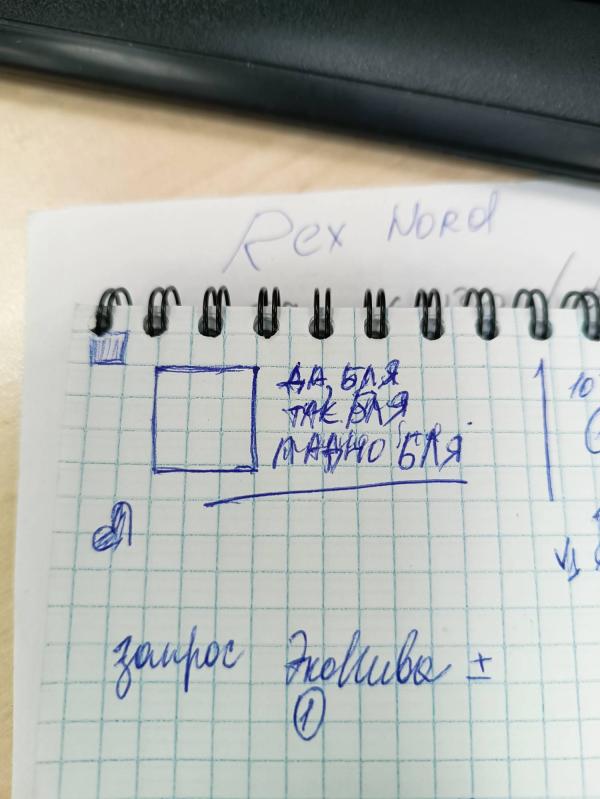 Rex Nord
ДА, БЛЯ
ТАК БЛЯ
ЛАДНО БЛЯ
10
запрос ЭкоНива ±
1